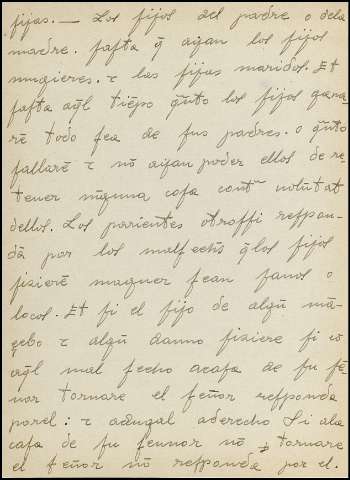 fijas.— Los fijos del padre o dela
madre. fafta q̃ ayan los fijos
mugieres. τ las fijas maridos. Et
fafta aq̃l tiẽpo q̃nto los fijos gana-
rẽ todo fea de fus padres. o q̃nto
fallarẽ τ nõ ayan poder ellos de re-
tener nĩguna cofa contᵃ volũtat
dellos. Los parientes otroffi refpon-
dã por los malfechõs q̃los fijos
fizierẽ maguer fean fanos o
locos. Et fi el fijo de algũ mã-
çebo τ algũ danno fiziere fi cõ
aq̃l mal fecho acafa de fu fẽ-
nor tornare el feñor refponda
porel: τ adugal aderecho Si ala
cafa de fu fennor nõ tornare
el feñor nõ refponda por el.